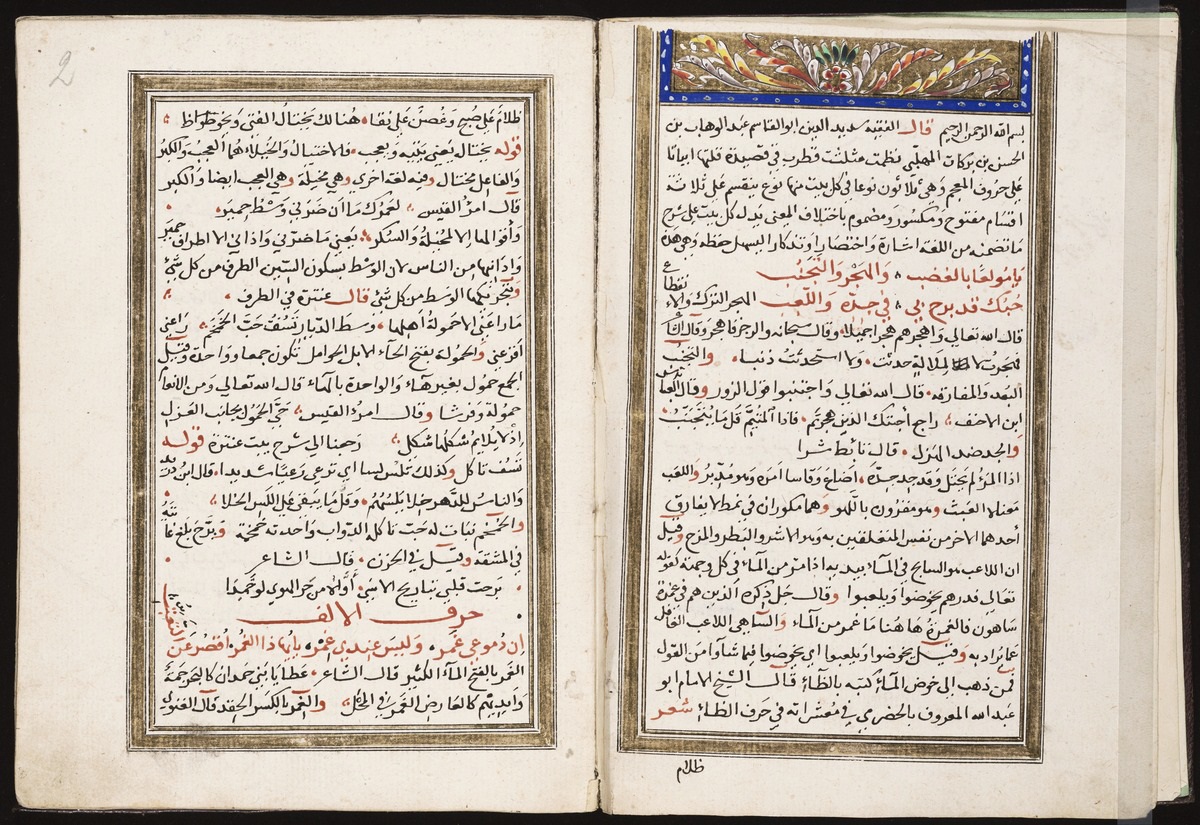 بسم الله الرحمن الرحيم قال الفقيه سديد الدين ابو القاسم عبد الوهاب بن
الحسن بن بركات المهلبي نظمت مثلث قطرب في قصيدة قلتها ابياتا
على حروف المعجم وهي ثلاثون نوعا في كل بيت منها نوع ينقسم على ثلاثة
اقسام مفتوح ومكسور ومضموم باختلاف المعنى يدله كل بيت على شرح
ما تضمنه من اللغة اشارة واختصارا وتذكارا ليسهل حفظه وهي هذه
يا مولعا بالغضب والهجر والتجنب
حبك قد برح بي في جده واللعب الهجر الترك والا
نقطاع
قال الله تعالى واهجرهم هجرا جميلا وقال سبحانه والرجز فاهجر وقال
هجرت لا لملالة حدثت ولا استحدثت ذنبا والتجنب
البعد والمفارقة قال الله تعالى واجتنبوا قول الزور وقال العباس
ابن الاحنف راجع أحبتك الذين هجرتم فاذا المتيم قل ما يتجنب
والجد ضد الهزل قال تأبط شرا
اذا المرء لم يحتل وقد جد جده أضاع وقاسا أمره وهو مدبر واللعب
معناه العبث وهو مقرون باللهو وهما مكوران في نمط لا يفارق
أحدهما الاخر من نفس المتعلقين به وهو الاشر والبطر والمزح وقيل
ان اللاعب هو السابح في الماء بيديه اذا مر من الماء في كل وجهة كقوله
تعالى فذرهم يخوضوا ويلعبوا وقال جل ذكره الذين هم في غمرة
ساهون فالغمرة ها هنا ما غمر من الماء والساهي اللاعب الغافل
عما يراد به وقيل يخوضوا ويلعبوا اي يخوضوا فيما شاوا من القول
فمن ذهب الى خوض الماء كتبه بالظاء قال الشيخ الامام ابو
عبد الله المعروف بالحضرمي في معشراته في حرف الظاء شعر
ظلام
2
ظلام على صبح وغصن على نقا هنالك يختال الفتى ويخوظ
قوله يختال يعني يتيه ويعجب فالاختيال والخيلاء هما العجب والكبر
والفاعل مختال وفيه لغة اخرى وهي مخيلة وهي العجب ايضا والكبر
قال امرؤ القيس لعمرك ما ان ضرني وسط حمير
وأقوالها الا المخيلة والسكر يعني ما ضرني واذاني الا اطراف حمير
وادانيها من الناس لان الوسط بسكون السين الطرف من كل شيء
وبتحريكها الوسط من كل شي قال عنترة في الطرف
ما راعني الا حمولة أهلها وسط الديار تسف حب الخمخم راعني
أفزعني والحمولة بفتح الحاء الابل الحوامل تكون جمعا وواحدة وقيل
الجمع حمول بغير هاء والواحدة بالهاء قال الله تعالى ومن الانعام
حمولة وفرشا وقال امرئ القيس حي الحمول بجانب العزل
إذ لا يلايم شكلها شكل رجعنا الى شرح بيت عنترة قوله
تسف تاكل وكذلك تلس لسا اي ترعى رعيا شديدا قال ابن دريد
والناس للدهر خلا يلسهم وقل ما يبقى على اللس الخلا
والخمخم نبات له حب تاكله الدواب واحدته خمخمة وبرح بلغ غا
ية
في المشقة وقيل في الحزن قال الشاعر
برحت قلبي تباريح الاسى أواه من حر الهوى لو خمدا
حرف الالف
إن دموعي غمر وليس عندي غمر يا أيها ذا الغمر أقصر عن
الغمر بالفتح الماء الكثير قال الشاعر عطايا بني حمدان كالبحر جمة
وأيديهم كالعارض الغمر في المحل والغمر بالكسر الحقد قال الغنوي